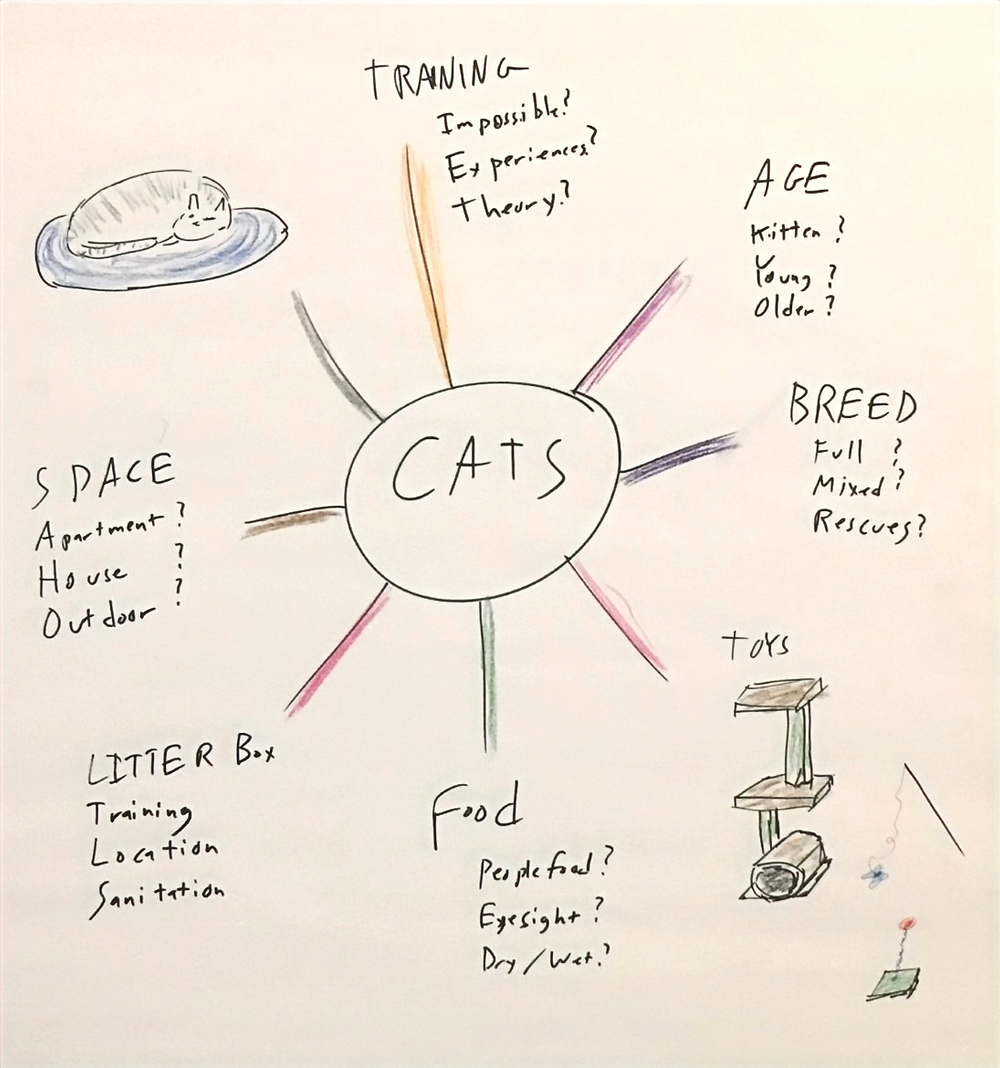 TRAINING
Impossible?
Experiences?
Theory?
AGE
Kitten ?
Young ?
Older ?
CATS
BREED
Full ?
Mixed ?
Rescues?
SPACE
Apartment ?
House ?
Outdoor ?
TOYS
LITTER Box
Training
Location
Sanitation
Food
People food ?
Eyesight ?
Dry / Wet ?